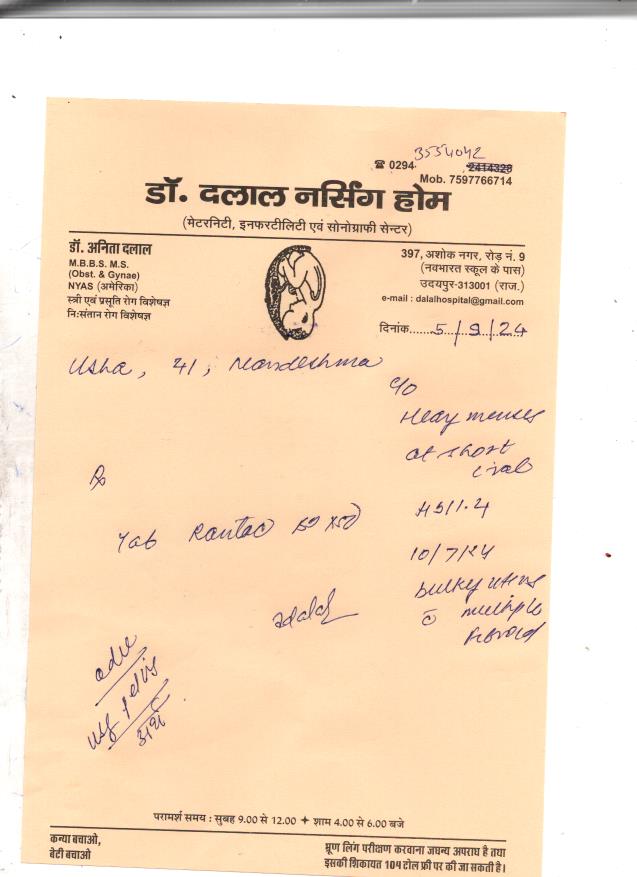 3554042
☎ 0294- 2414328
Mob. 7597766714
डॉ. दलाल नर्सिंग होम
(मेटरनिटी, इनफरटीलिटी एवं सोनोग्राफी सेन्टर)
डॉ. अनिता दलाल
M.B.B.S. M.S.
(Obst. & Gynae)
NYAS (अमेरिका)
स्त्री एवं प्रसूति रोग विशेषज्ञ
नि:संतान रोग विशेषज्ञ
397, अशोक नगर, रोड़ नं. 9
(नवभारत स्कूल के पास)
उदयपुर-313001 (राज.)
e-mail : dalalhospital@gmail.com
दिनांक......5/9/24
Usha, 41, Nandeshma
c/o
Heavy menses
at short
ival
Rx
Tab Rantac
10/7/24
bulky uterus
c̄ multiple
fibroid
adalal
adv
usg pelvis
परामर्श समय : सुबह 9.00 से 12.00 + शाम 4.00 से 6.00 बजे
कन्या बचाओ,
बेटी बचाओ
भ्रूण लिंग परीक्षण करवाना जघन्य अपराध है तथा
इसकी शिकायत 104 टोल फ्री पर की जा सकती है।